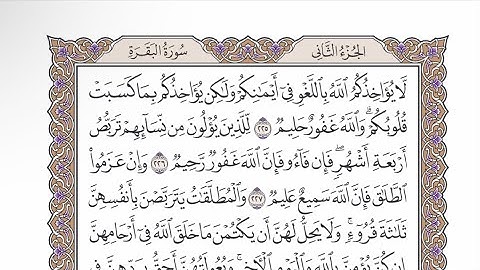 الجُزْءُ الثَّانِي
سُورَةُ البَقَرَةِ
لَّا يُؤَاخِذُكُمُ اللَّهُ بِاللَّغْوِ فِي أَيْمَانِكُمْ وَلَٰكِن يُؤَاخِذُكُم بِمَا كَسَبَتْ
قُلُوبُكُمْ ۗ وَاللَّهُ غَفُورٌ حَلِيمٌ ٢٢٥ لِّلَّذِينَ يُؤْلُونَ مِن نِّسَائِهِمْ تَرَبُّصُ
أَرْبَعَةِ أَشْهُرٍ ۖ فَإِن فَاءُو فَإِنَّ اللَّهَ غَفُورٌ رَّحِيمٌ ٢٢٦ وَإِنْ عَزَمُوا
الطَّلَاقَ فَإِنَّ اللَّهَ سَمِيعٌ عَلِيمٌ ٢٢٧ وَالْمُطَلَّقَاتُ يَتَرَبَّصْنَ بِأَنفُسِهِنَّ
ثَلَاثَةَ قُرُوءٍ ۚ وَلَا يَحِلُّ لَهُنَّ أَن يَكْتُمْنَ مَا خَلَقَ اللَّهُ فِي أَرْحَامِهِنَّ
إِن كُنَّ يُؤْمِنَّ بِاللَّهِ وَالْيَوْمِ الْآخِرِ ۚ وَبُعُولَتُهُنَّ أَحَقُّ بِرَدِّهِنَّ فِي